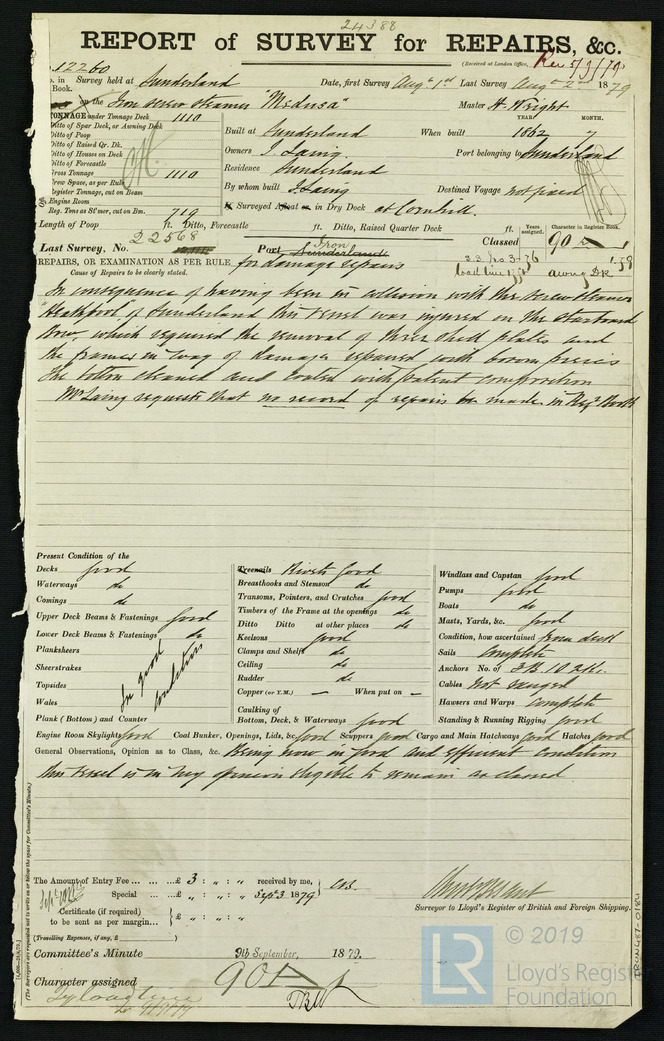 24388
REPORT of SURVEY for REPAIRS, &c.
(Received at London Office, Rec 5/9/79)
12260
in Survey held at Sunderland Date, first Survey Augt 1st Last Survey Augt 2nd 1879
Book.
on the Iron screw steamer "Medusa" Master H. Wright
TONNAGE under Tonnage Deck 1110
Ditto of Spar Deck, or Awning Deck
Ditto of Poop
Ditto of Raised Qr. Dk.
Ditto of Houses on Deck
Ditto of Forecastle
Gross Tonnage 1110
Crew Space, as per Rule
Register Tonnage, cut on Beam
Engine Room
Reg. Tons as St'mer, cut on Bm. 719
YEAR. MONTH.
Built at Sunderland When built 1862 7
Owners J. Laing. Port belonging to Sunderland
Residence Sunderland
By whom built J. Laing Destined Voyage not fixed
If Surveyed Afloat or in Dry Dock at Cornhill.
Length of Poop ft. Ditto, Forecastle ft. Ditto, Raised Quarter Deck ft.
Years assigned. Character in Register Book.
Last Survey, No. 22568 Port Sunderland Iron Classed 90 A 1
REPAIRS, OR EXAMINATION AS PER RULE, for damage repairs
Cause of Repairs to be clearly stated.
S.S. No 3-76
load line
awng Dk
In consequence of having been in collision with the screw steamer
"Heathpool" of Sunderland this vessel was injured on the starboard
Bow, which required the removal of three shell plates and
the frames in way of damage repaired with bosom pieces
The bottom cleaned and coated with patent composition
Mr Laing requests that no record of repairs be made in Regr Book
Present Condition of the
Decks good
Waterways do
Comings do
Upper Deck Beams & Fastenings Good
Lower Deck Beams & Fastenings do
Planksheers
Sheerstrakes
Topsides
Wales
Plank (Bottom) and Counter
In good condition
Treenails Rivets good
Breasthooks and Stemson do
Transoms, Pointers, and Crutches good
Timbers of the Frame at the openings do
Ditto Ditto at other places do
Keelsons good
Clamps and Shelfs do
Ceiling do
Rudder do
Copper (or Y.M.) — When put on —
Caulking of
Bottom, Deck, & Waterways good
Windlass and Capstan good
Pumps good
Boats do
Masts, Yards, &c. good
Condition, how ascertained from deck
Sails Complete
Anchors No. of 3 B. 1 O 2 Kc.
Cables Not ranged
Hawsers and Warps complete
Standing & Running Rigging good
Engine Room Skylights good Coal Bunker, Openings, Lids, &c. good Scuppers good Cargo and Main Hatchways good Hatches good
General Observations, Opinion as to Class, &c. Being now in good and efficient condition
this vessel is in my opinion eligible to remain as classed
The Amount of Entry Fee ... £ 3 : „ : „ received by me,
Special ... £ „ : „ : „ Sept 3 1879
Certificate (if required)
to be sent as per margin... £ „ : „ : „
(Travelling Expenses, if any, £ )
Surveyor to Lloyd's Register of British and Foreign Shipping.
Committee's Minute 9th September, 1879.
Character assigned 90 A 1
(The Surveyors are requested not to write on or below the space for Committee's Minute.)
LR © 2019
Lloyd's Register
Foundation